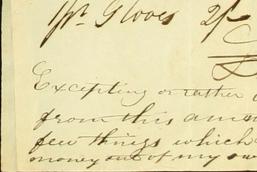 1 pr. Gloves 2/-
Excepting or rather
from this am
few things which
money out of my own